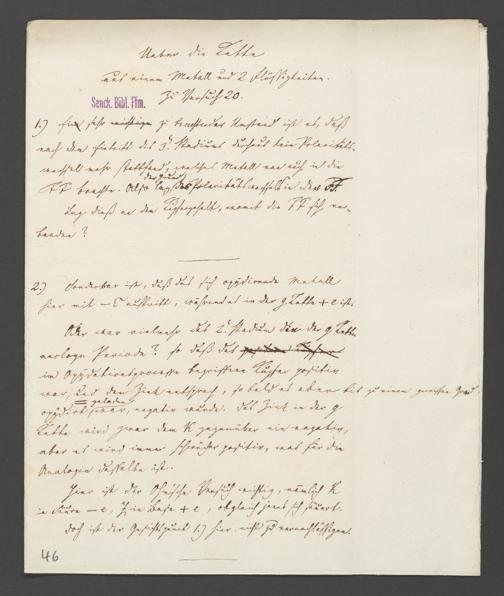 Ueber die Kette
aus einem Metall und 2 Flüssigkeiten.
Zu Versuch 20.
Senck. Bibl. Ffm.
1.) Ein sehr wichtiger zu beachtender Umstand ist es, daß
nach dem Eintritt des 3. Stadiums durchaus kein Polaritäts-
wechsel mehr stattfand, welches Metall man auch in die
FF brachte. Also lag der Grund des Polaritätswechsels in den FF
Lag dieß an der Kupfergehalt, womit die FF sich ver-
banden?
2.) Sonderbar ist, daß das sich oxydirende Metall
hier mit – E auftritt, während es in der g Kette + e ist.
Oder war vielmehr das 2. Stadium das der g Kette
analoge Periode? so daß das
im Oxydationsprocesse begriffene Kupfer positiv
war, und dem Zink entsprach, sobald es aber bis zu einem gewissen Grad
oxydirt war, negativ wurde. Das Zink in der g
Kette wird zwar dem K gegenüber nie negativ,
aber es wird immer schwächer positiv, was für die
Analogie dasselbe ist.
Hier ist der Ohm'sche Versuch wichtig, nämlich K
in Säure – e, Z in Base + e, obgleich jenes sich säuert.
Doch ist der Gesichtspunkt 1.) hier nicht zu vernachlässigen.
46